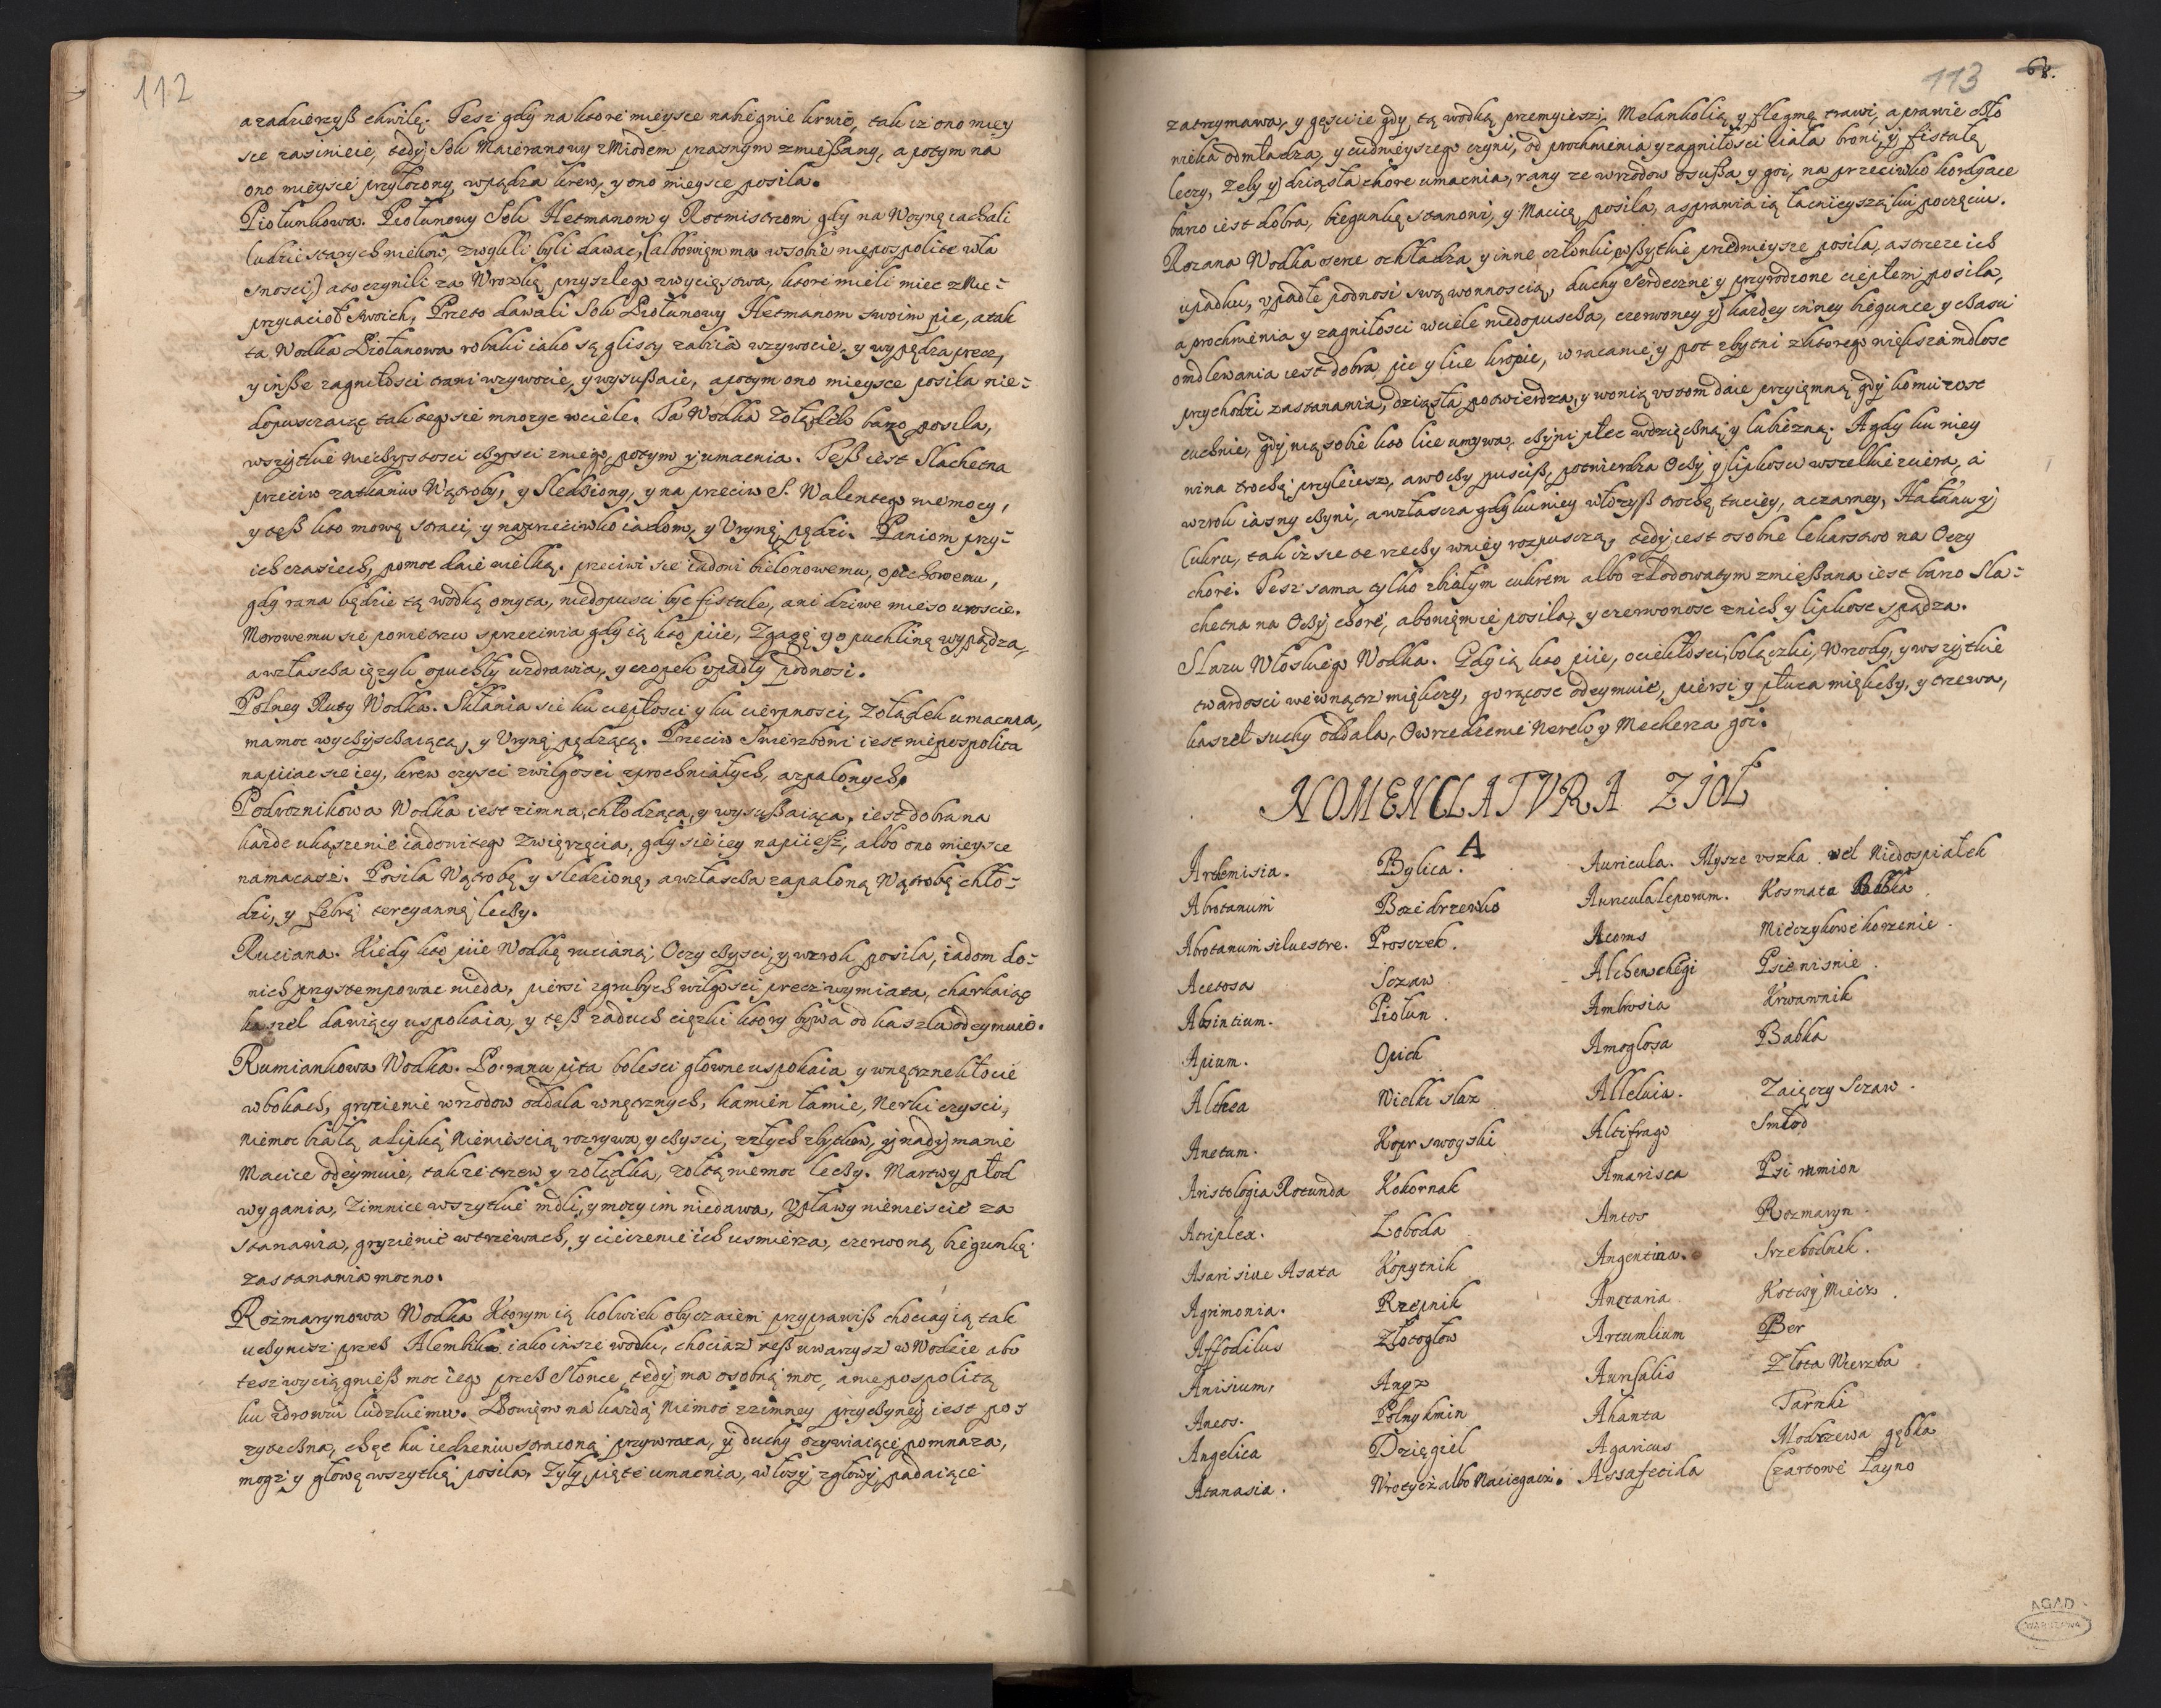 112
a zadzierzyß chwilę. Tesz gdy na ktore mieysce nabiegnie krwie, tak iz ono miey
sce zasinieie, tedy Sok Maieranowy z Miodem przasnym zmießany, a potym na
ono mieysce przyłozony, wpądza krew, y ono mieysce posila.
Piołunkowa. Piołunowy Sok Hetmanom y Rotmistrzom gdy na Woynę iachali
Ludzie starych wiekow, zwykli byli dawac, (albowięm ma w sobie niepospolite wła
snosci) a to czynili za Wrozkę przyszłego zwycięstwa, ktore mieli miec z Nie=
przyiacioł swoich, Przeto dawali Sok Piołunowy Hetmanom swoim pic, a tak
ta Wodka Piołunowa robaki iako są glisty zabiia w zywocie, y wypądza precz,
y inße zagniłosci trawi w zywocie, y wysußaie, a potym ono mieysce posila nie=
dopusczaiąc tak tego sie mnozyc w ciele. Ta Wodka Zołądek barzo posila,
wszytkie niechystosci chysci z niego, potym y umacnia. Teß iest Slachetna
przeciw zatkaniu Wątroby, y Sledziony, y na przeciw S. Walentego niemocy,
y teß kto mowę straci, y naprzeciwko iadom, y Urynę pędzi. Paniom przy=
ich czasiech, pomoc daie wielką. przeciwi sie iadoni bielonowemu, opichowemu,
gdy rana będzie tą wodką omyta, niedopusci byc fistule, ani dziwe mięso uroscie.
Morowemu sie powietrzu sprzeciwia gdy ią kto piie, Zgagę y opuchlinę wypądza,
a właszcha ięzyk opuchły uzdrawia, y czopek upadły podnosi.
Polney Ruty Wodka. Skłania sie ku ciepłosci y ku cierpnosci, Zołądek umacnia,
ma moc wychyschaiącą, y Urynę pędzącą. Przeciw Swierzbowi iest niepospolita
napiiac sie iey, krew czysci z wilgosci sprochniałych, a zpalonych.
Podroznikowa Wodka iest zimna, chłodząca, y wysußaiąca, iest dobra na
kazde ukąszenie iadowitego Zwięrzęcia, gdy sie iey napiiesz, albo ono mieysce
namacasz. Posila Wątrobę y sledzionę, a właszcha zapaloną Wątrobę chło=
dzi, y febrę tercyannę lechy.
Ruciana. Kiedy kto piie Wodkę rucianą Oczy chysci, y wzrok posila, iadom do=
nich przystempowac nieda, piersi z grubych wilgosci precz wymiata, charkaiąc
kaszel dawiący uspokaia, y teß zaduch cięzki ktory bywa od kaszlu odeymuie.
Rumiankowa Wodka. Po ranu pita bolesci głowne uspokaia y wnęczne kłocie
w bokach, gryzienie wrzodow oddala wnęcznych, kamien łamie, Nerki czysci,
Niemoc białą a lipką Niewiescią rozrywa, y chysci, z złych zbytkow, y nadymanie
Macice odeymuie, takze trzew y zołądka, zołtą niemoc lechy. Martwy płod
wygania, Zimnice wszytkie mdli, y mocy im niedawa, Upławy niewiescie za
stanawia, gryzienie w trzewach, y cieczenie ich usmierza, czerwoną biegunkę
zastanawia mocno.
Rozmarynowa Wodka Ktorym ią kolwiek obyczaiem przyprawiß chociay ią tak
uchynisz przes Alembik iako insze wodki, chociaz teß uwarzysz w Wodzie abo
tesz wyciągnieß moc iego przes Słonce, tedy ma osobną moc, a niepospolitą
ku zdrowiu ludzkiemu. Bowięm na kazdą Niemoc z zimney przychyney iest po=
zytechna, chęc ku iedzeniu straconą przywraca, y duchy ozywiaiące pomnaza,
mozg y głowę wszytkę posila, Zyły pięte umacnia, włosy z głowy padaiące
113 68.
zatrzymawa, y gęsciie gdy tą wodką przemyiesz, Melankolią y flegmę trawi, a prawie chło
wieka odmładza, y cudnieyszego czyni, od prochnienia y zagniłosci ciała broni, y fistułę
leczy, Zeby y dziąsła chore umacnia, rany ze wrzodow osußa y goi, na przeciwko kordyace
barzo iest dobra, biegunkę stanowi, y Macicę posila, a sprawia ią łacnieyszą ku poczęciu.
Rozana Wodka serce ochładza y inne członki wßytkie przednieysze posila, a strzeze ich
upadku, upadłe podnosi swą wonnoscią, duchy Serdeczne y przyrodzone ciepłem posila,
a prochnienia y zagniłosci w ciele niedopuscha, czerwoney y kazdey inney biegunce y chasu
omdlewania iest dobra pic y lice kropic, wracanie y pot zbytni z ktorego większa mdłosc
przychodzi zastanawia, dziąsła potwierdza, y wonią ustom daie przyięmną, gdy komu z ust
cuchnie, gdy nią sobie kto lice umywa, chyni płec wdzięchną y lubiezną. A gdy ku niey
wina trochę przyleiesz, a w ochy puscisz, potwierdza Ochy, y lipkosci wszelkie zciera, a
wzrok iasny chyni, a własczа gdy ku niey włozyß trochę tuciey, a czarney, Hałunu y
Cukru, tak iz sie te rzechy w niey rozpusczą, tedy iest osobne lekarstwo na Oczy
chore. Tesz sama tylko z białym cukrem albo z lodowatym zmießana iest barzo Sla=
chetna na Ochy chore, abowięm ie posila, y czerwonosc z nich y lipkosc spądza.
Slazu Włoskiego Wodka. Gdy ią kto piie, ociekłosci, bolączki, Wrzody, y wszytkie
twardosci wewnątrz miękczy, gorącosc odeymuie, piersi y płuca miękchy, y trzewa,
kaszel suchy oddala, Owrzedzenie Nerek y Mecherza goi.
NOMENCLATVRA ZIOŁ
A
Artemisia. Bylica. Auricula. Mysze uszka vel Niedospiałek
Abrotanum Boze drzewko Auricula leporum. Kosmata Babka
Abrotanum siluestre. Prosczek. Acoms Mieczykowe korzenie.
Acetosa Sczaw Alchenchegi Psie wisnie.
Absintium. Piołun. Ambrosia Krwawnik
Apium. Opich Amoglosa Babka
Altzea Wielki slaz Alleluia. Zaięczy Sczaw.
Anetum. Kopr swoyski Altifrago Smłod
Aristologia Rotunda Kokornak Amarisca Psi rumion
Atriplex. Łoboda Antos Rozmaryn.
Asari siue Asata Kopytnik Argentina. Srzebrnik.
Agrimonia. Rzepnik Anotaria Kotczy Miecz.
Affodilus Złotogłow Arcumlium Ber
Anisium, Anyz Aursalis Złota Wierzba
Aneos. Polny kmin Ahanta Tarnki
Angelica Dzięgiel Agaricus Modrzewa gębka
Atanasia. Wrotycz albo Maciegacz. Assafetida Czartowe Łayno
AGAD
WARSZAWA